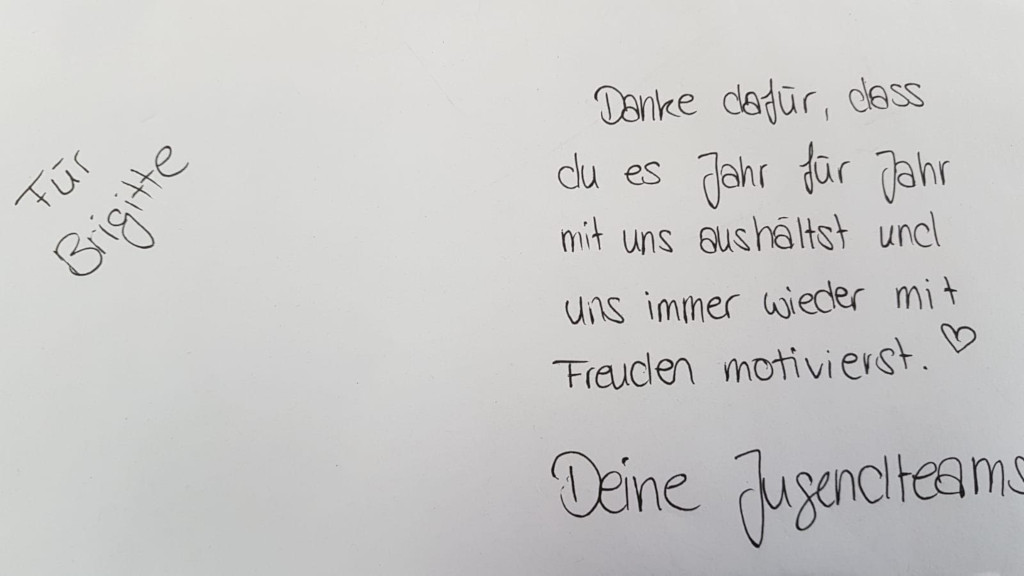 Für
Brigitte
Danke dafür, dass
du es Jahr für Jahr
mit uns aushältst und
uns immer wieder mit
Freuden motivierst. ♡
Deine Jugendteams